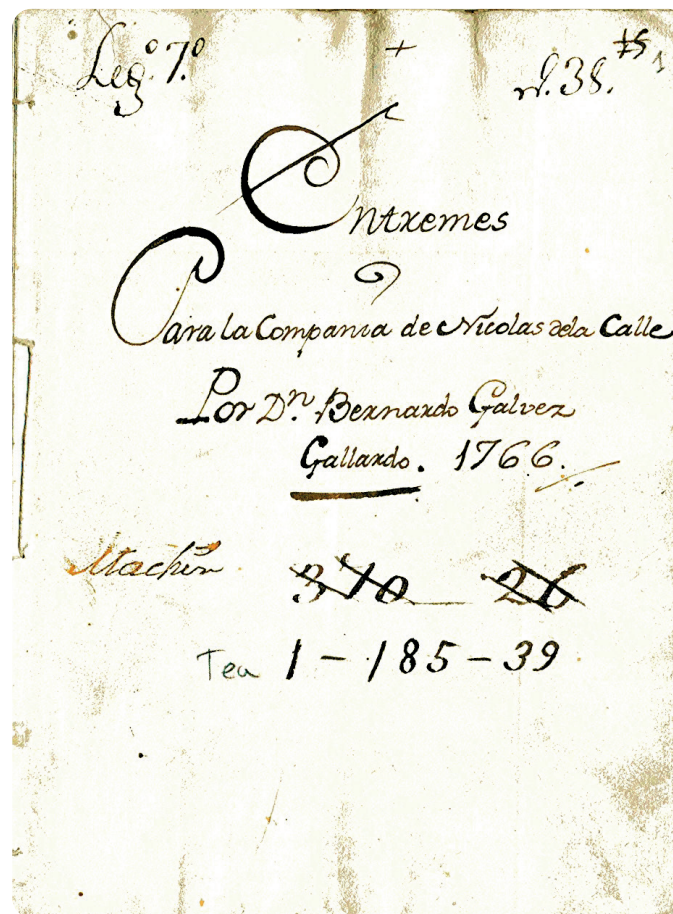 Leg.º 7.º + n. 38. 15 1
Entremes
Para la Compania de Nicolas dela Calle
Por D.n Bernardo Galvez
Gallardo. 1766.
Machin 310 26
Tea 1-185-39